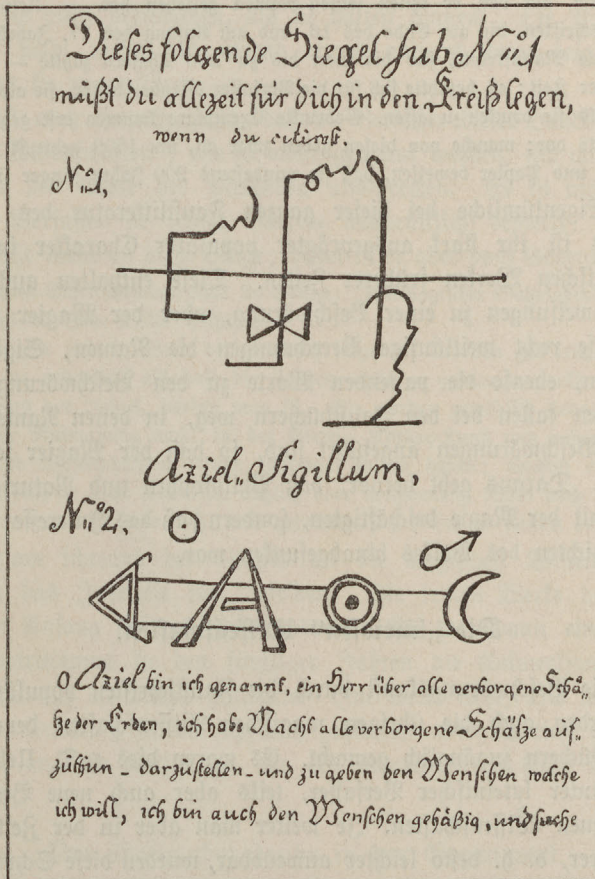 Dieses folgende Siegel sub N⁰1
müßt du allezeit für dich in den Kreiß legen,
wenn du citirst.
N⁰1,
Aziel„ Sigillum,
N„⁰2,
O Aziel bin ich genannt, ein Herr über alle verborgene Schä„
tze der Erden, ich habe Macht alle verborgene Schätze auf„
züthun - darzüstellen - und zu geben den Menschen welche
ich will, ich bin auch den Menschen gehäßig, und